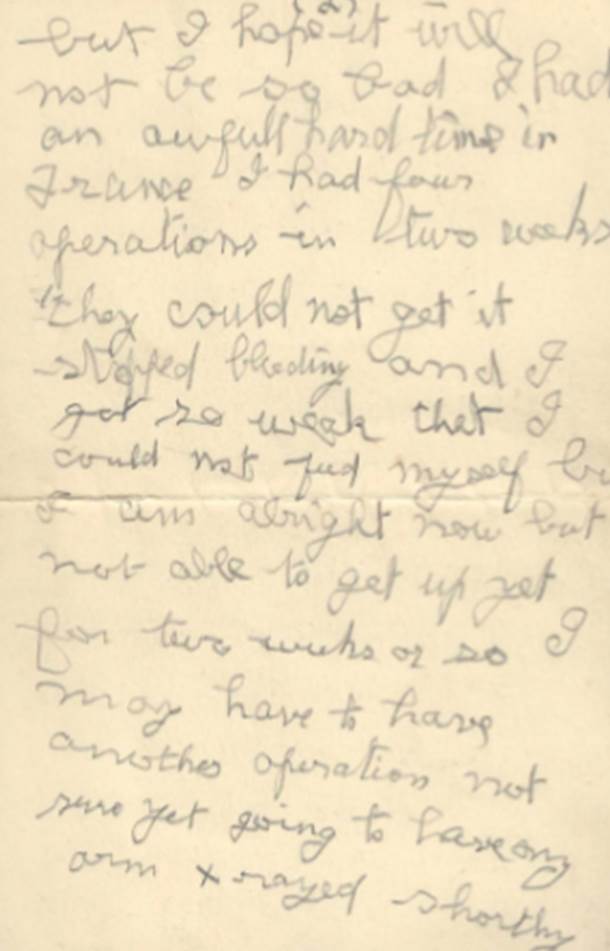 but I hope it will
not be so bad I had
an awfull hard time in
France I had four
operations in two weeks
they could not get it
stopped bleeding and I
got so weak that I
could not feed myself bu
I am alright now but
not able to get up yet
for two weeks or so I
may have to have
another operation not
sure yet going to have my
arm x rayed shortly